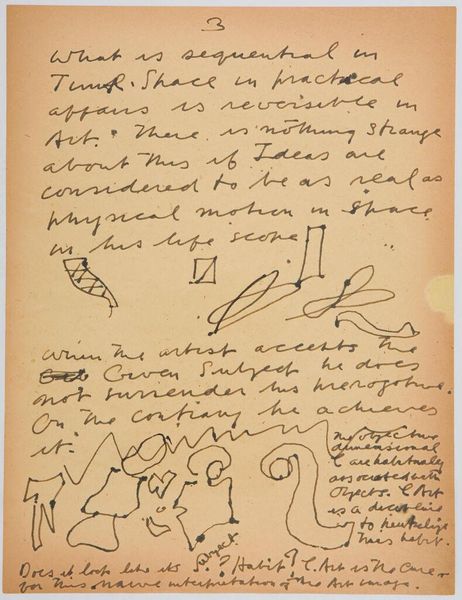 3
What is sequential in
Time-Space in practical
affairs is reversible in
Art. There is nothing strange
about this if Ideas are
considered to be as real as
physical motion in space
in his life scope
When the artist accepts the
Given Subject he does
not surrender his prerogative.
On the contrary he achieves
it.
The objective
dimensional
are habitually
associated with
objects. Art
is a discipline
to neutralize
this habit.
Does it look like its subject? Habit? Art is the cure
for this naive interpretation of the Art image.